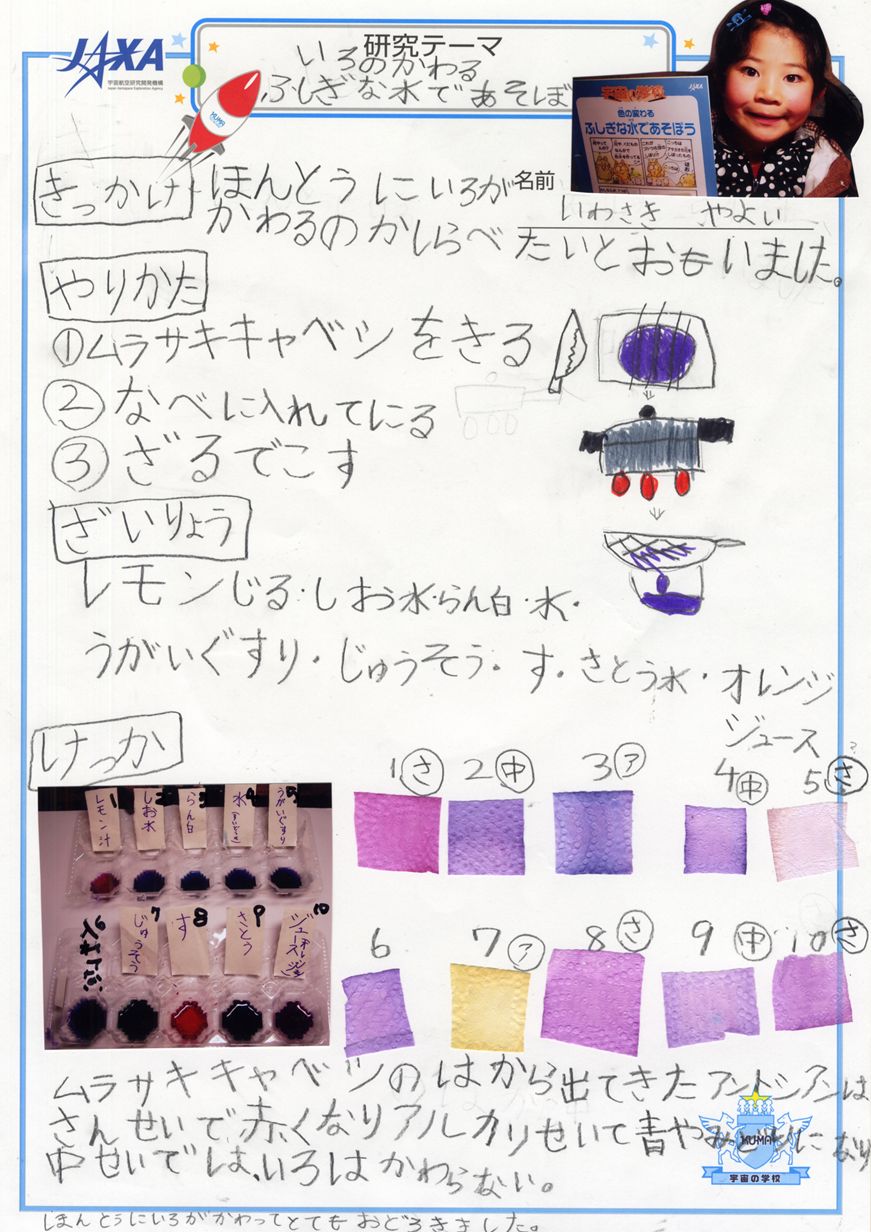 JAXA
宇宙航空研究開発機構
Japan Aerospace Exploration Agency
研究テーマ
いろのかわる
ふしぎな水であそぼ
KUMA
JAXA
宇宙の学校
色の変わる
ふしぎな水であそぼう
きっかけ
ほんとうにいろが
かわるのかしらべたいとおもいました。
名前
いわさき やよい
やりかた
①ムラサキキャベツをきる
②なべに入れてにる
③ざるでこす
ざいりょう
レモンじる・しお水・らん白・水・
うがいぐすり・じゅうそう・す・さとう水・オレンジ
ジュース
けっか
1 レモン汁
2 しお水
3 らん白
4 水
5 うがいぐすり
6
7 じゅうそう
8 す
9 さとう
10 ジュース
1 さ 2 中 3 ア 4 中 5 さ
6 7 ア 8 さ 9 中 10 さ
ムラサキキャベツのはから出てきたアントシアンは
さんせいで赤くなりアルカリせいで青やみどりになり
中せいでは、いろはかわらない。
KUMA
宇宙の学校
ほんとうにいろがかわってとてもおどろきました。